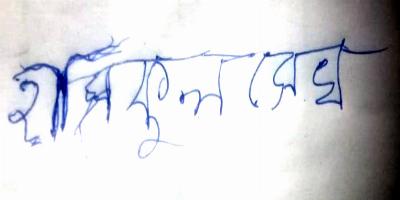 হাফিকুল সেখ